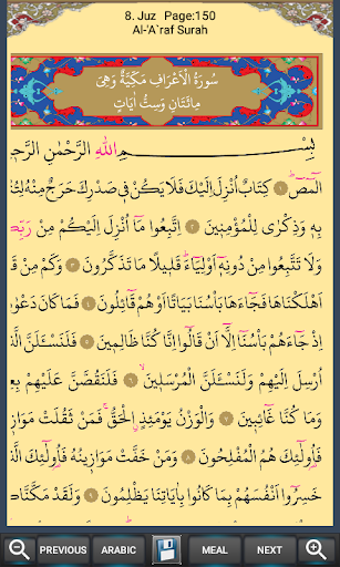 8. Juz Page:150
Al-'A`raf Surah
سُورَةُ الْاَعْرَافِ مَكِّيَّةٌ وَهِيَ
مِائَتَانِ وَسِتُّ اٰيَاتٍ
بِسْمِ اللّٰهِ الرَّحْمٰنِ الرَّحِيمِ
الٓمٓصٓ ١ كِتَابٌ اُنْزِلَ اِلَيْكَ فَلَا يَكُنْ فٖي صَدْرِكَ حَرَجٌ مِنْهُ لِتُ
بِهٖ وَذِكْرٰى لِلْمُؤْمِنٖينَ ٢ اِتَّبِعُوا مَٓا اُنْزِلَ اِلَيْكُمْ مِنْ رَبِّكُ
وَلَا تَتَّبِعُوا مِنْ دُونِهٖٓ اَوْلِيَٓاءَ قَلٖيلًا مَا تَذَكَّرُونَ ٣ وَكَمْ مِنْ قَ
اَهْلَكْنَاهَا فَجَٓاءَهَا بَأْسُنَا بَيَاتًا اَوْ هُمْ قَٓائِلُونَ ٤ فَمَا كَانَ دَعْوٰ
اِذْ جَٓاءَهُمْ بَأْسُنَٓا اِلَّٓا اَنْ قَالُٓوا اِنَّا كُنَّا ظَالِمٖينَ ٥ فَلَنَسْـَٔلَنَّ
اُرْسِلَ اِلَيْهِمْ وَلَنَسْـَٔلَنَّ الْمُرْسَلٖينَ ٦ فَلَنَقُصَّنَّ عَلَيْهِمْ بِعِ
وَمَا كُنَّا غَٓائِبٖينَ ٧ وَالْوَزْنُ يَوْمَئِذٍ الْحَقُّ فَمَنْ ثَقُلَتْ مَوَازٖ
فَاُو۬لٰٓئِكَ هُمُ الْمُفْلِحُونَ ٨ وَمَنْ خَفَّتْ مَوَازٖينُهُ فَاُو۬لٰٓئِكَ الَّ
خَسِرُٓوا اَنْفُسَهُمْ بِمَا كَانُوا بِاٰيَاتِنَا يَظْلِمُونَ ٩ وَلَقَدْ مَكَّنَّا
PREVIOUS ARABIC MEAL NEXT